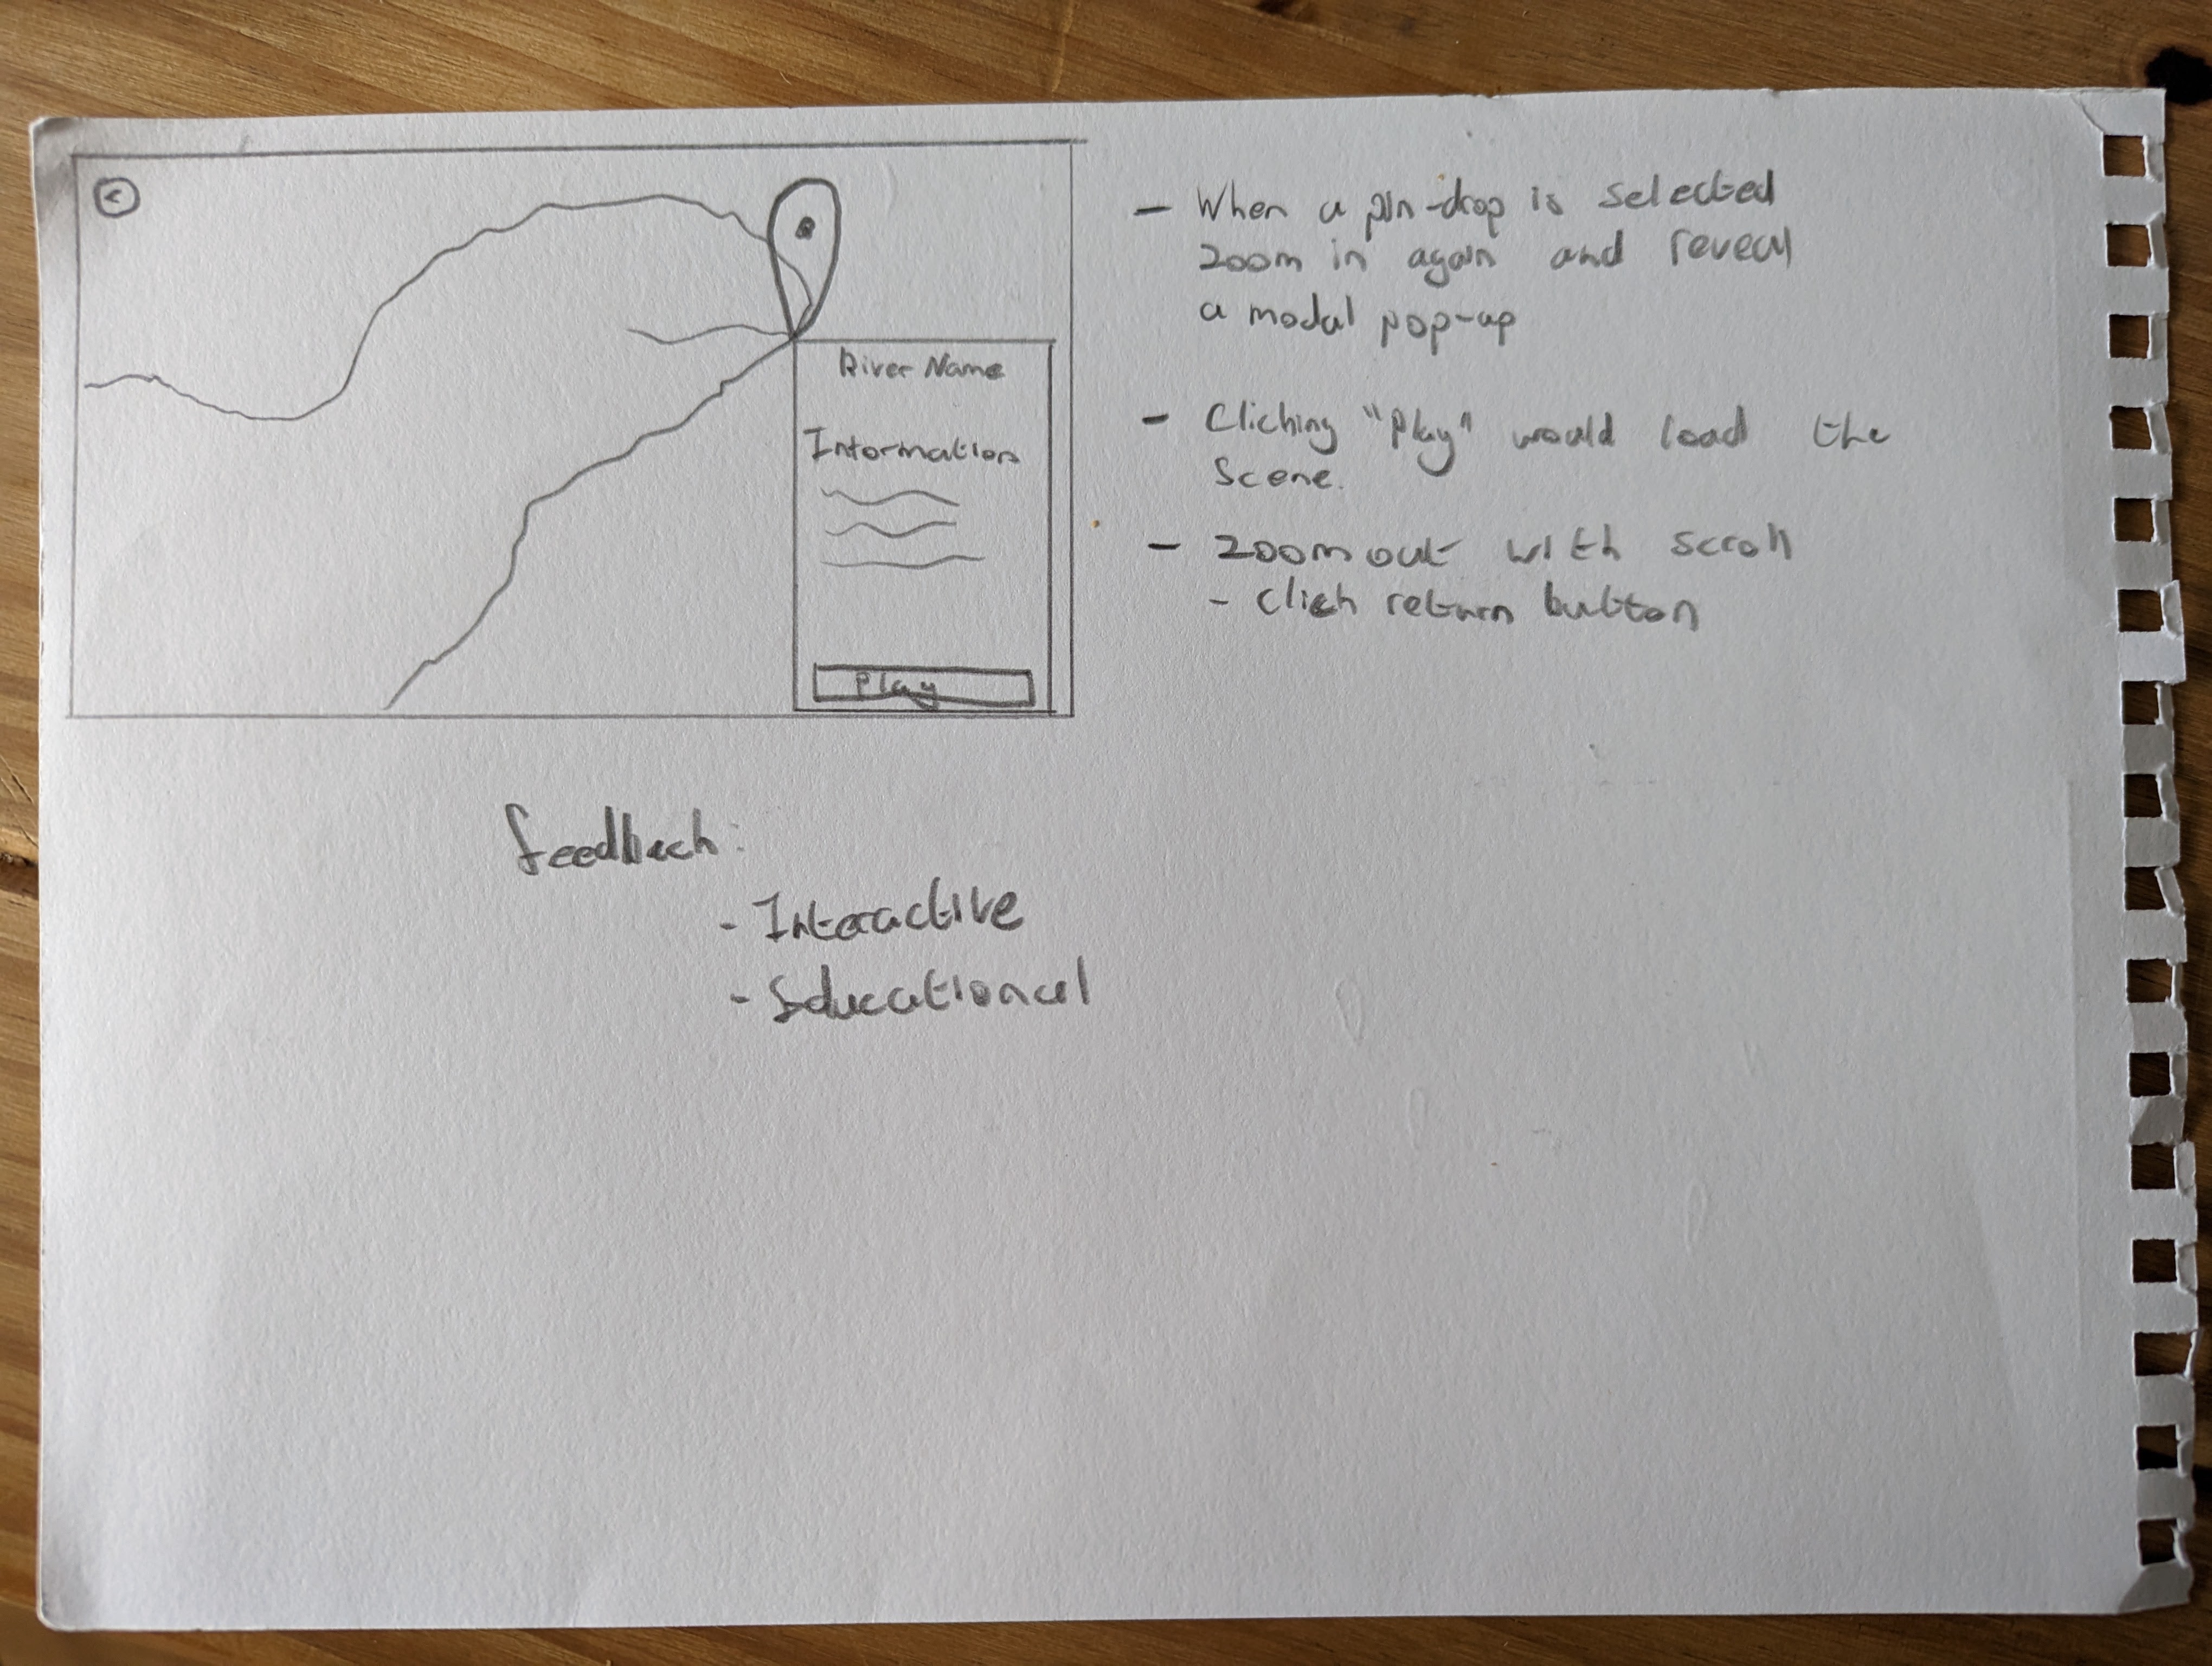 <
River Name
Information
Play
- When a pin-drop is selected
zoom in again and reveal
a modal pop-up
- Clicking "Play" would load the
scene.
- Zoom out with scroll
- Click return button
Feedback:
- Interactive
- Educational